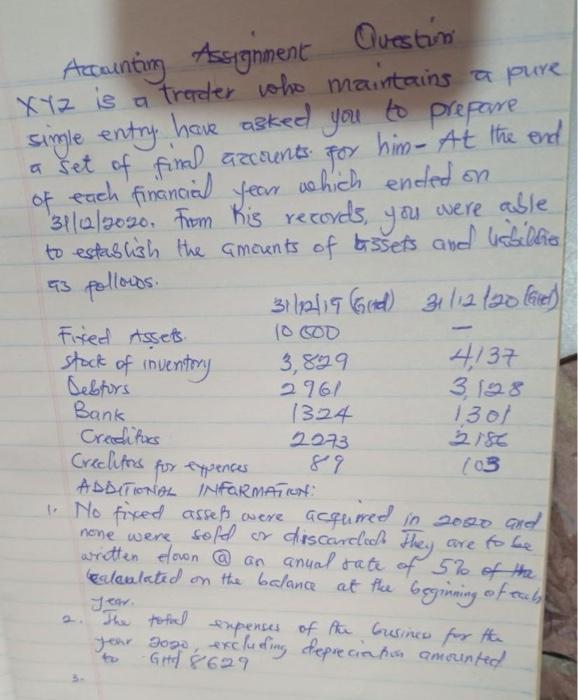 Accounting Assignment Question
XYZ is a trader who maintains a pure
single entry have asked you to prepare
a set of final accounts for him - At the end
of each financial year which ended on
31/12/2020. From his records, you were able
to establish the amounts of assets and liabilities
as follows.
31/12/19 (GH¢) 31/12/20 (GH¢)
Fixed Assets 10 000 —
Stock of inventory 3,829 4,137
Debtors 2961 3,128
Bank 1324 1,301
Creditors 2273 2186
Creditors for expences 89 103
ADDITIONAL INFORMATION:
1. No fixed assets were acquired in 2020 and
none were sold or discarded. They are to be
written down @ an anual rate of 5% of the
calculated on the balance at the beginning of each
year.
2. The total expenses of the business for the
year 2020, excluding depreciation amounted
to GH¢ 8629
3-